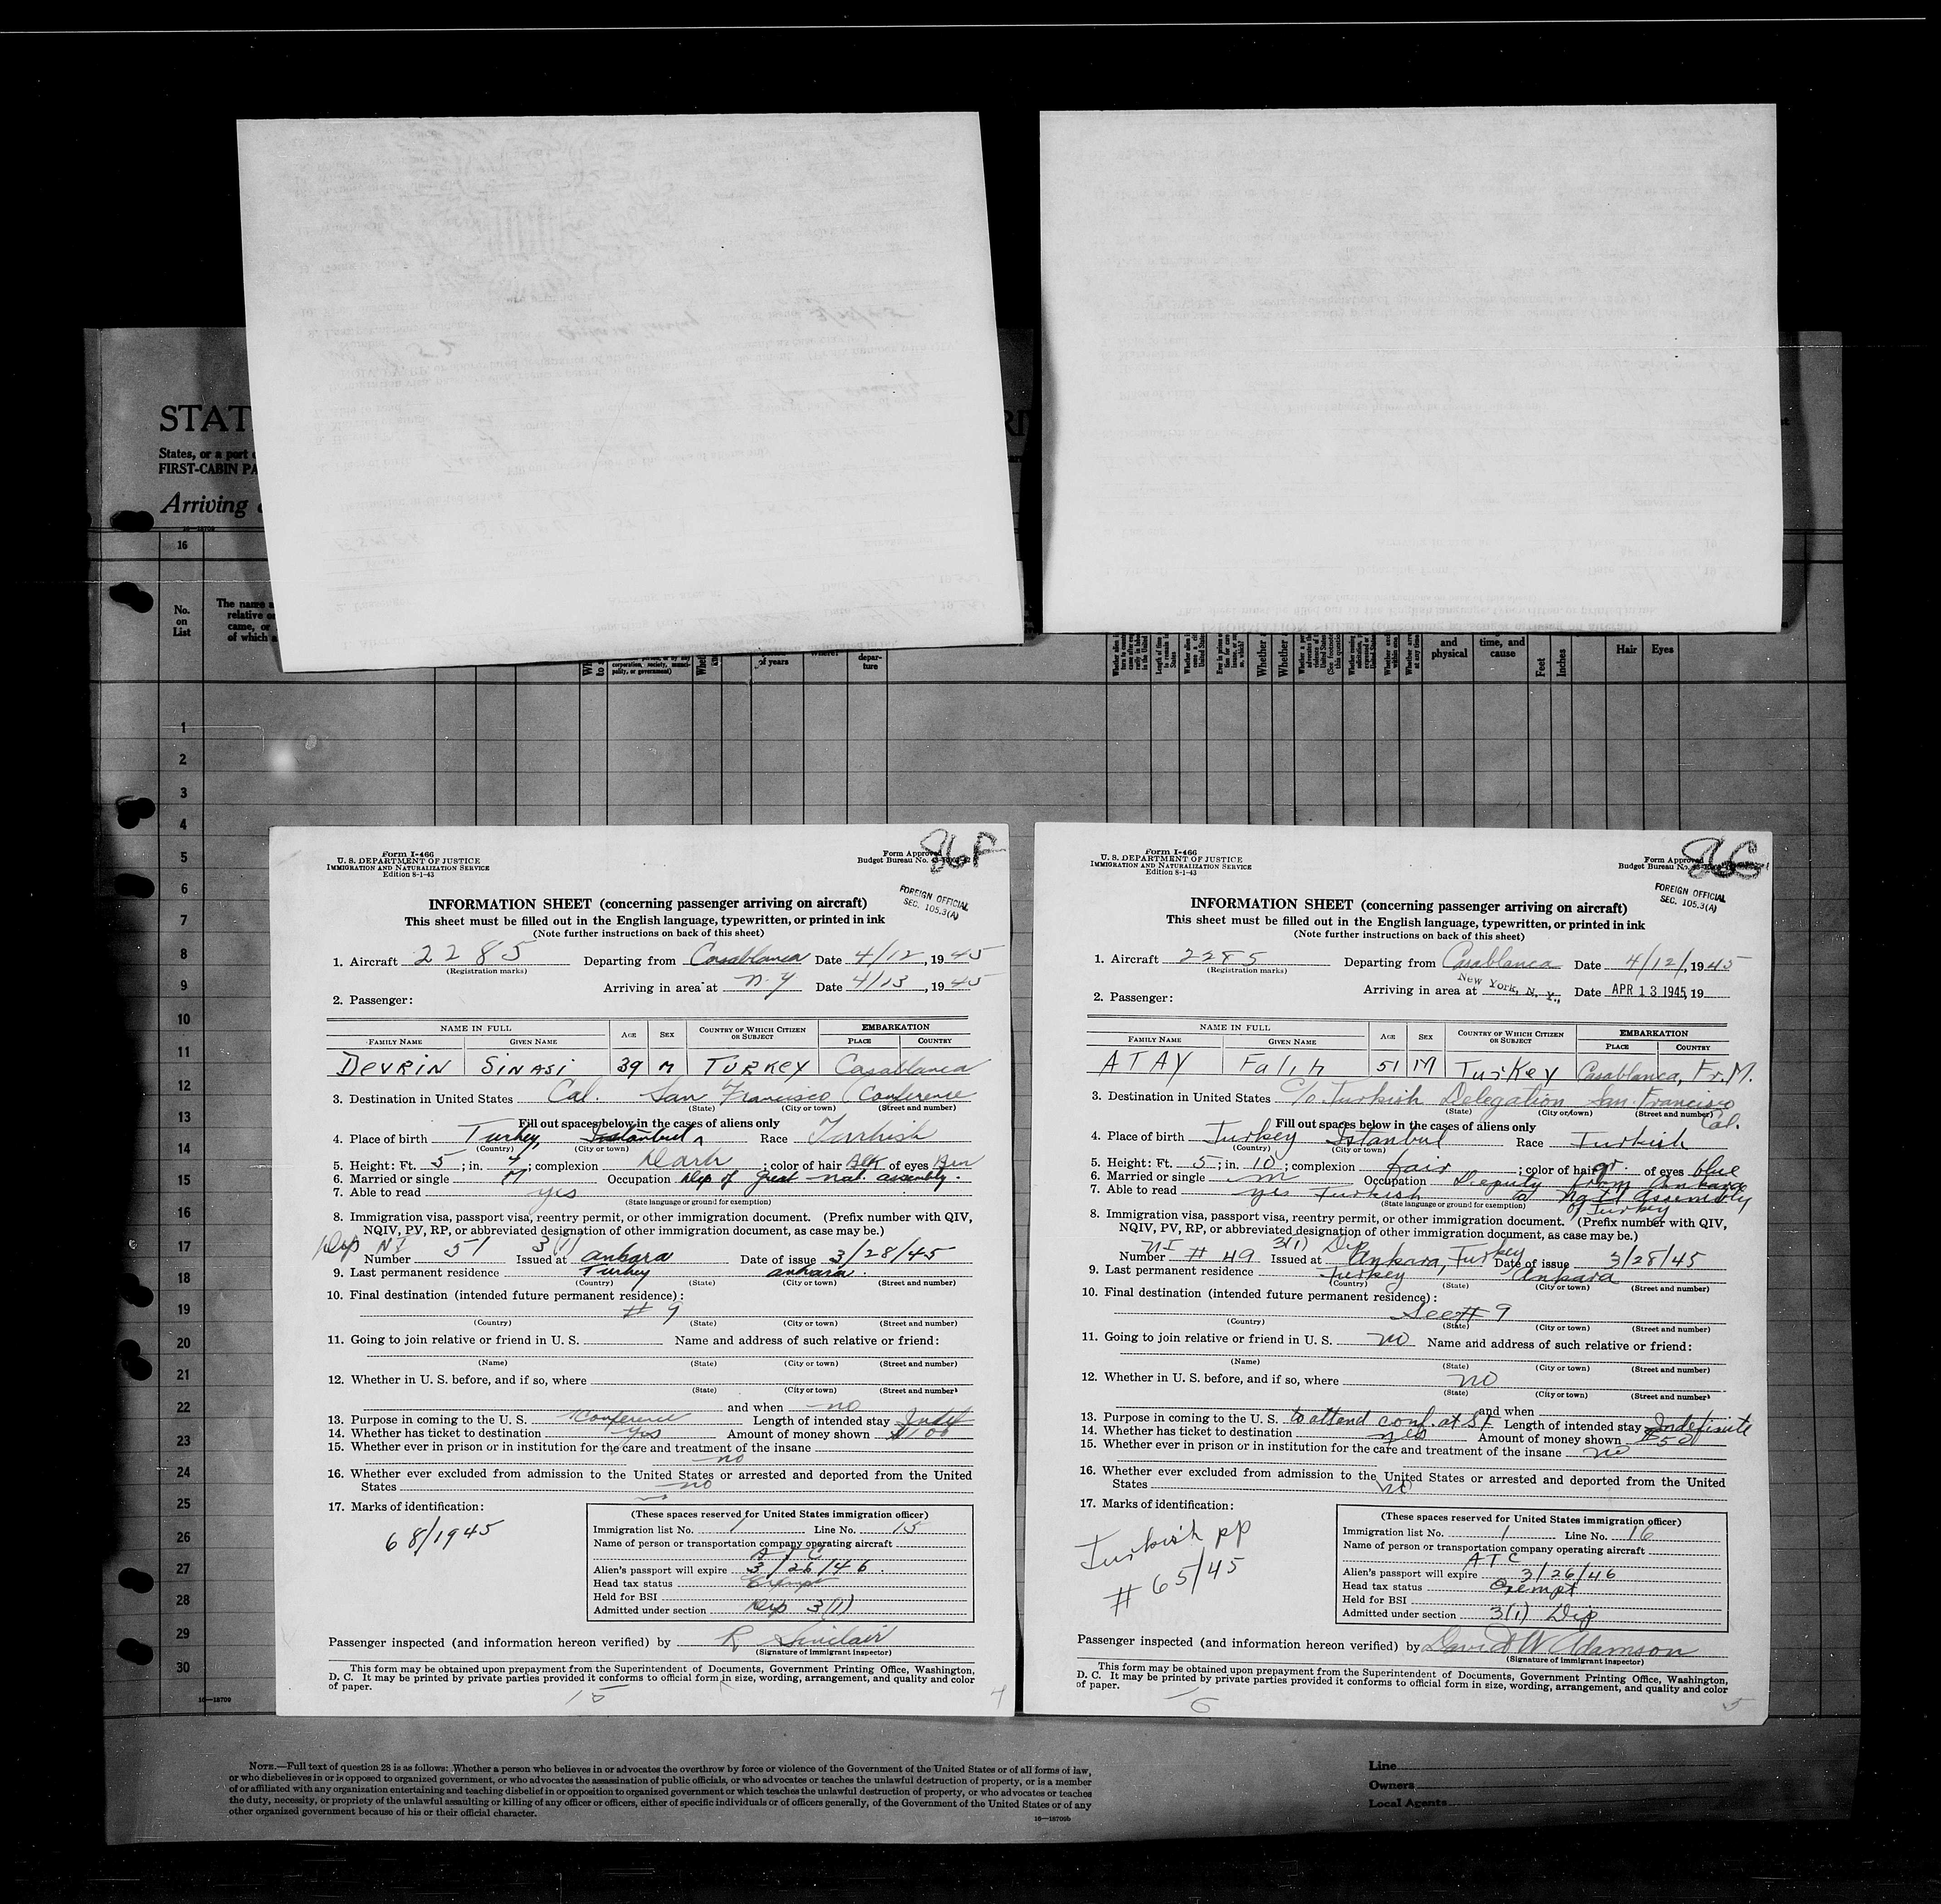 STAT
RI
States, or a port o
FIRST-CABIN PA
Arriving
16—18709
16
No.
on
List
The name a
relative or
came, or
of which a
corporation, society, munici-
pality, or government)
of years
where?
depar-
ture
and
physical
time, and
cause
Feet
Inches
Hair
Eyes
1
2
3
4
5
6
7
8
9
10
11
12
13
14
15
16
17
18
19
20
21
22
23
24
25
26
27
28
29
30
16—18709
Form I-466
U. S. DEPARTMENT OF JUSTICE
IMMIGRATION AND NATURALIZATION SERVICE
Edition 8-1-43
86F
Form Approved
Budget Bureau No.
FOREIGN OFFICIAL
SEC. 105.3(A)
INFORMATION SHEET (concerning passenger arriving on aircraft)
This sheet must be filled out in the English language, typewritten, or printed in ink
(Note further instructions on back of this sheet)
1. Aircraft 2285 Departing from Casablanca Date 4/12, 1945
(Registration marks)
Arriving in area at N.Y Date 4/13, 1945
2. Passenger:
NAME IN FULL AGE SEX COUNTRY OF WHICH CITIZEN OR SUBJECT EMBARKATION
FAMILY NAME GIVEN NAME PLACE COUNTRY
DEVRIN SINASI 39 M TURKEY Casablanca
3. Destination in United States Cal. San Francisco Conference
(State) (City or town) (Street and number)
Fill out spaces below in the cases of aliens only
4. Place of birth Turkey, Istanbul Race Turkish
(Country) (City or town)
5. Height: Ft. 5; in. 7; complexion Dark; color of hair BLK of eyes Brn
6. Married or single M Occupation Dep of Great nat. assembly.
7. Able to read yes
(State language or ground for exemption)
8. Immigration visa, passport visa, reentry permit, or other immigration document. (Prefix number with QIV,
NQIV, PV, RP, or abbreviated designation of other immigration document, as case may be.)
Dip NI 3(1)
Number 51 Issued at Ankara Date of issue 3/28/45
9. Last permanent residence Turkey Ankara.
(Country) (State) (City or town) (Street and number)
10. Final destination (intended future permanent residence):
# 9
(Country) (State) (City or town) (Street and number)
11. Going to join relative or friend in U. S. Name and address of such relative or friend:
(Name) (State) (City or town) (Street and number)
12. Whether in U. S. before, and if so, where
(State) (City or town) (Street and number)
and when no
13. Purpose in coming to the U. S. Conference Length of intended stay Indef
14. Whether has ticket to destination yes Amount of money shown $100
15. Whether ever in prison or in institution for the care and treatment of the insane
no
16. Whether ever excluded from admission to the United States or arrested and deported from the United
States no
17. Marks of identification:
68/1945
(These spaces reserved for United States immigration officer)
Immigration list No. 1 Line No. 15
Name of person or transportation company operating aircraft
ATC
Alien's passport will expire 3/26/46.
Head tax status Exempt
Held for BSI
Admitted under section Dip 3(1)
Passenger inspected (and information hereon verified) by R Sinclair
(Signature of immigrant inspector)
This form may be obtained upon prepayment from the Superintendent of Documents, Government Printing Office, Washington,
D. C. It may be printed by private parties provided it conforms to official form in size, wording, arrangement, and quality and color
of paper.
15
4
Form I-466
U. S. DEPARTMENT OF JUSTICE
IMMIGRATION AND NATURALIZATION SERVICE
Edition 8-1-43
86G
Form Approved
Budget Bureau No.
FOREIGN OFFICIAL
SEC. 105.3(A)
INFORMATION SHEET (concerning passenger arriving on aircraft)
This sheet must be filled out in the English language, typewritten, or printed in ink
(Note further instructions on back of this sheet)
1. Aircraft 2285 Departing from Casablanca Date 4/12/, 1945
(Registration marks)
Arriving in area at New York, N. Y., Date APR 13 1945, 19
2. Passenger:
NAME IN FULL AGE SEX COUNTRY OF WHICH CITIZEN OR SUBJECT EMBARKATION
FAMILY NAME GIVEN NAME PLACE COUNTRY
ATAY Falih 51 M Turkey Casablanca, Fr. M.
3. Destination in United States C/o Turkish Delegation San Francisco
(State) (City or town) (Street and number)
Cal.
Fill out spaces below in the cases of aliens only
4. Place of birth Turkey Istanbul Race Turkish
(Country) (City or town)
5. Height: Ft. 5; in. 10; complexion fair; color of hair gr. of eyes blue
6. Married or single m Occupation Deputy from Ankara
7. Able to read yes Turkish to Nat'l Assembly
(State language or ground for exemption) of Turkey
8. Immigration visa, passport visa, reentry permit, or other immigration document. (Prefix number with QIV,
NQIV, PV, RP, or abbreviated designation of other immigration document, as case may be.)
NI 3(1) Dip
Number # 49 Issued at Ankara, Turkey Date of issue 3/28/45
9. Last permanent residence Turkey Ankara
(Country) (State) (City or town) (Street and number)
10. Final destination (intended future permanent residence):
See # 9
(Country) (State) (City or town) (Street and number)
11. Going to join relative or friend in U. S. no Name and address of such relative or friend:
(Name) (State) (City or town) (Street and number)
12. Whether in U. S. before, and if so, where no
(State) (City or town) (Street and number)
and when
13. Purpose in coming to the U. S. to attend conf. at S.F. Length of intended stay Indefinite
14. Whether has ticket to destination yes Amount of money shown $50
15. Whether ever in prison or in institution for the care and treatment of the insane no
16. Whether ever excluded from admission to the United States or arrested and deported from the United
States no
17. Marks of identification:
Turkish pp
# 65/45
(These spaces reserved for United States immigration officer)
Immigration list No. 1 Line No. 16
Name of person or transportation company operating aircraft
ATC
Alien's passport will expire 3/26/46
Head tax status Exempt
Held for BSI
Admitted under section 3(1) Dip
Passenger inspected (and information hereon verified) by David W Adamson
(Signature of immigrant inspector)
This form may be obtained upon prepayment from the Superintendent of Documents, Government Printing Office, Washington,
D. C. It may be printed by private parties provided it conforms to official form in size, wording, arrangement, and quality and color
of paper.
16
5
NOTE.—Full text of question 28 is as follows: Whether a person who believes in or advocates the overthrow by force or violence of the Government of the United States or of all forms of law,
or who disbelieves in or is opposed to organized government, or who advocates the assassination of public officials, or who advocates or teaches the unlawful destruction of property, or is a member
of or affiliated with any organization entertaining and teaching disbelief in or opposition to organized government or which teaches the unlawful destruction of property, or who advocates or teaches
the duty, necessity, or propriety of the unlawful assaulting or killing of any officer or officers, either of specific individuals or of officers generally, of the Government of the United States or of any
other organized government because of his or their official character.
16—18709b
Line
Owners
Local Agents